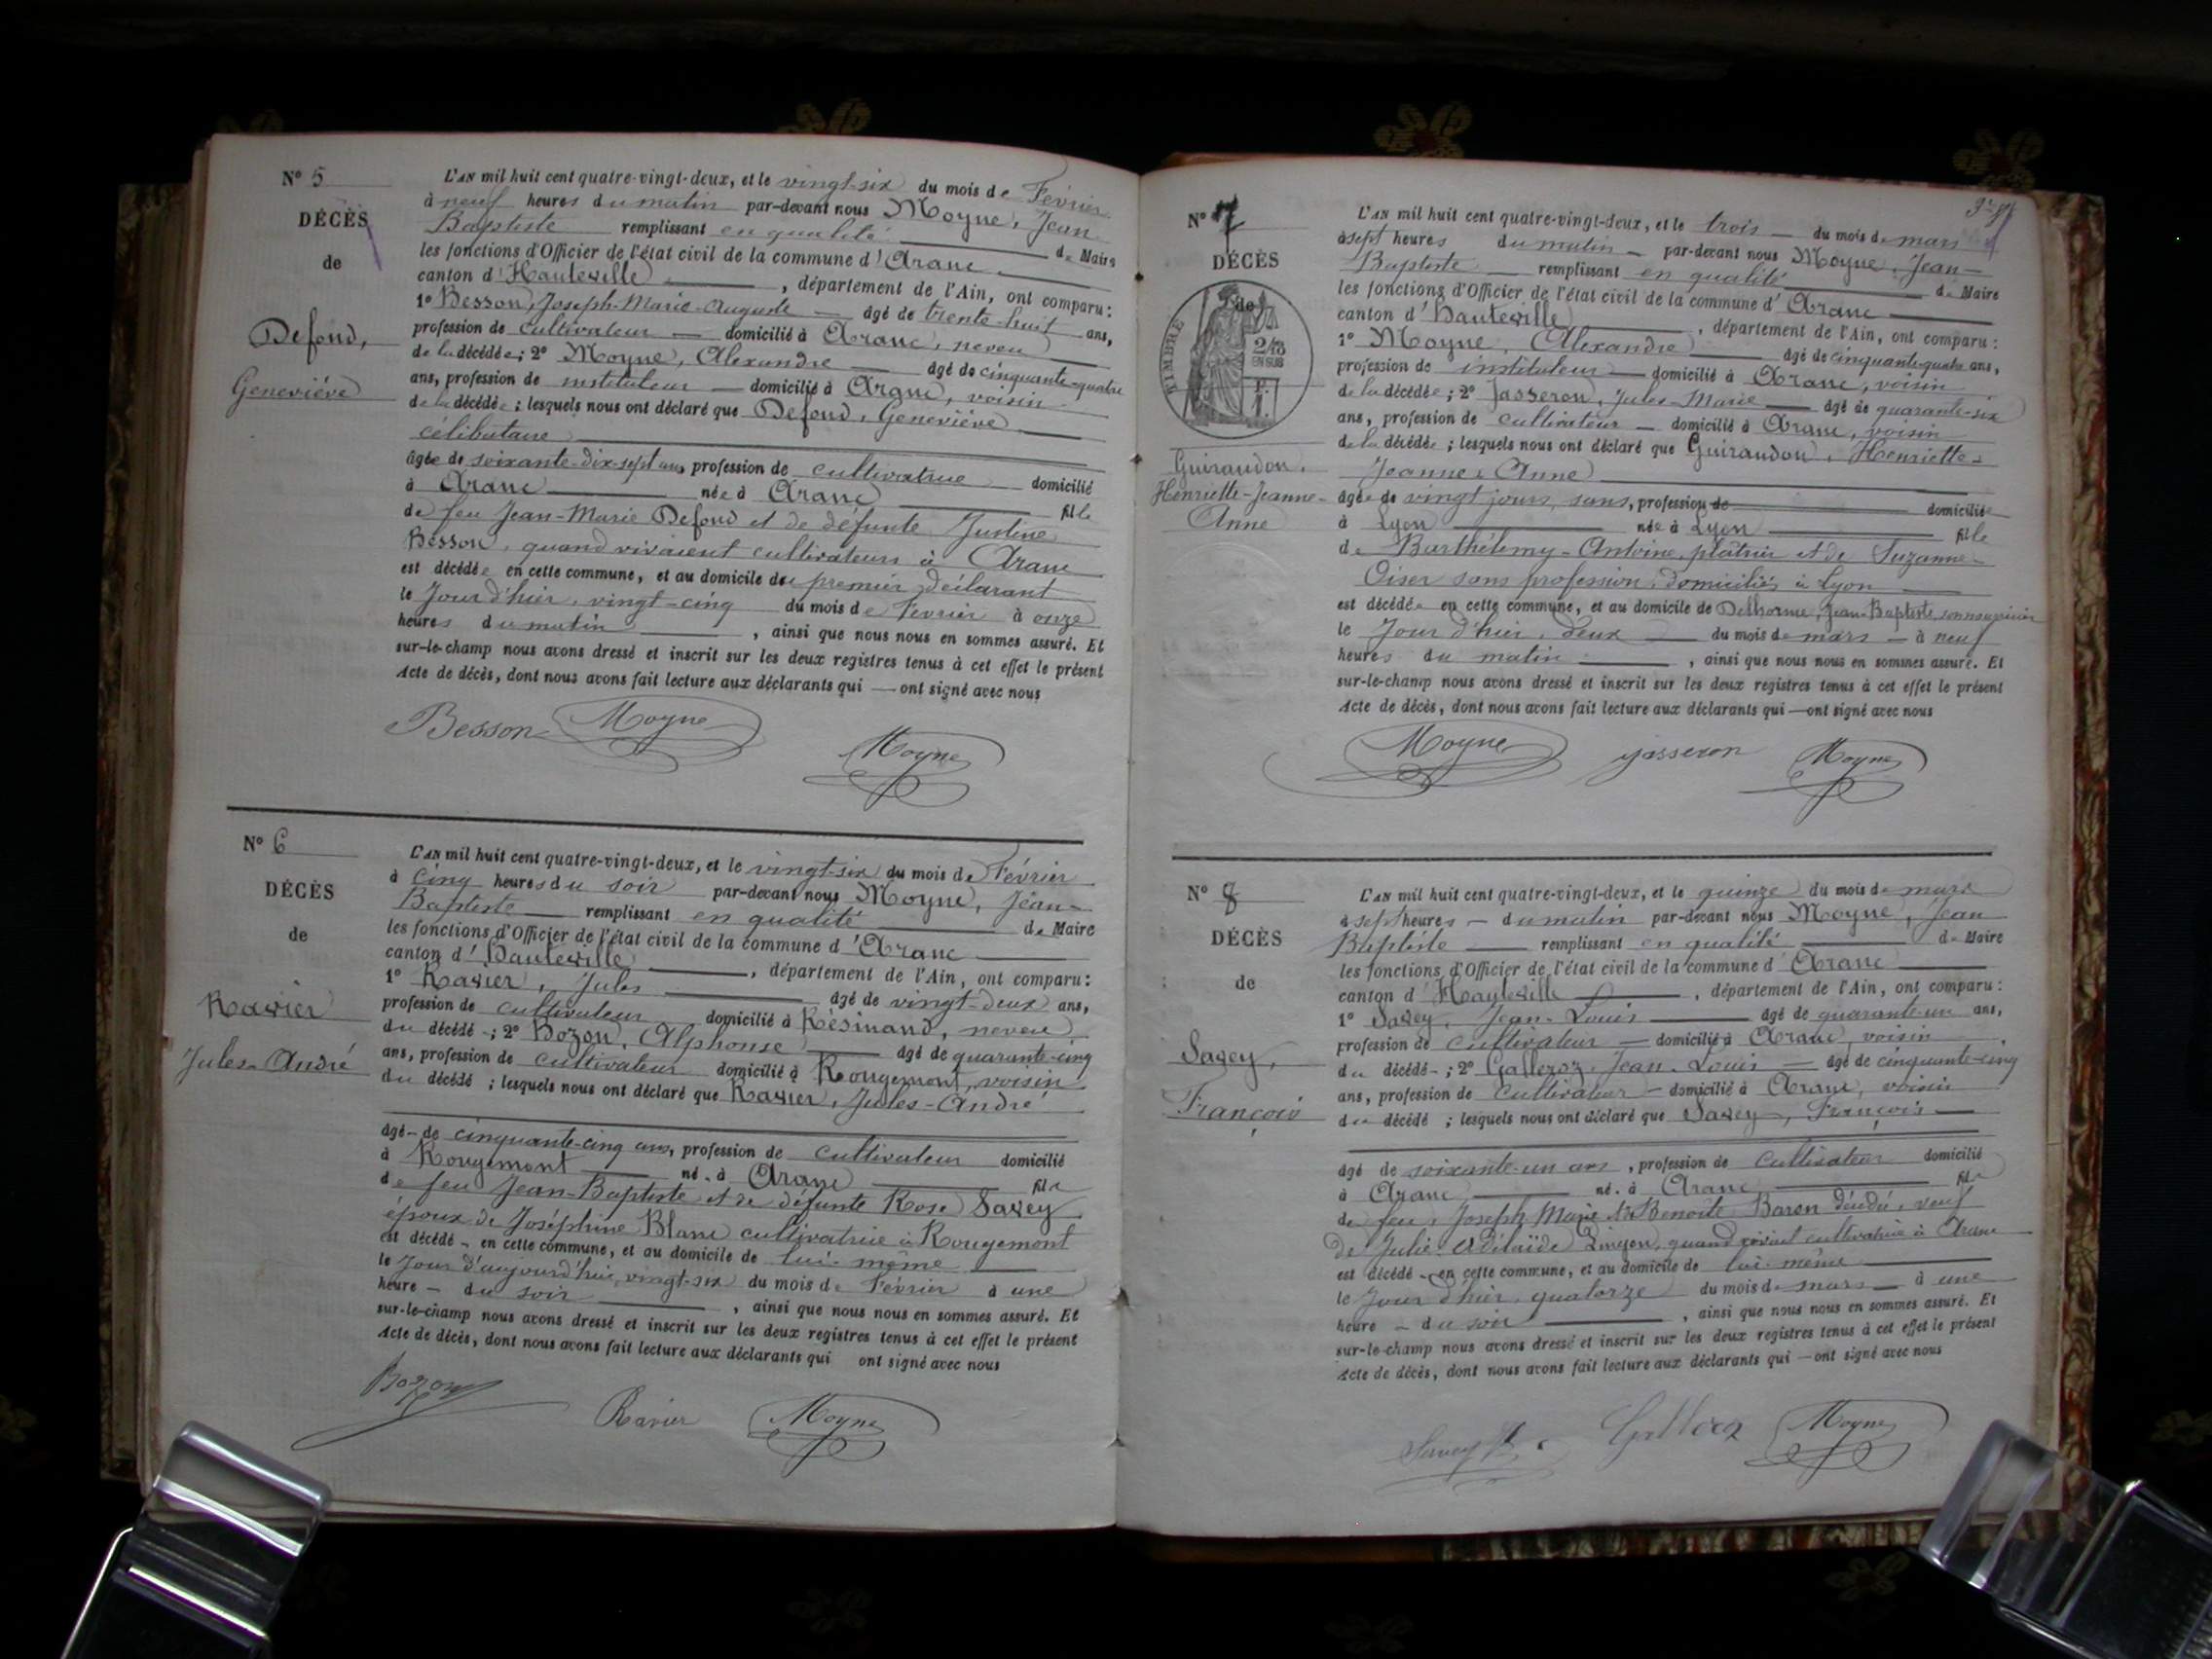 N° 5
DÉCÈS
de
Defond,
Geneviève
L'AN mil huit cent quatre-vingt-deux, et le vingt-six du mois de Février
à neuf heures du matin par-devant nous Moyne, Jean
Baptiste remplissant en qualité de Maire
les fonctions d'Officier de l'état civil de la commune d'Aranc
canton d'Hauteville, département de l'Ain, ont comparu:
1° Besson, Joseph-Marie-Auguste âgé de trente-huit ans,
profession de cultivateur domicilié à Aranc, neveu
de la décédée; 2° Moyne, Alexandre âgé de cinquante-quatre
ans, profession de instituteur domicilié à Aranc, voisin
de la décédée; lesquels nous ont déclaré que Defond, Geneviève
célibataire
âgée de soixante-dix-sept ans, profession de cultivatrice domicilié
à Aranc née à Aranc fille
de feu Jean-Marie Defond et de défunte Justine
Besson, quand vivaient cultivateurs à Aranc
est décédée en cette commune, et au domicile du premier déclarant
le Jour d'hier, vingt-cinq du mois de Février à onze
heures du matin, ainsi que nous nous en sommes assuré. Et
sur-le-champ nous avons dressé et inscrit sur les deux registres tenus à cet effet le présent
Acte de décès, dont nous avons fait lecture aux déclarants qui — ont signé avec nous
Besson Moyne Moyne
N° 6
DÉCÈS
de
Ravier
Jules-André
L'AN mil huit cent quatre-vingt-deux, et le vingt-six du mois de Février
à cinq heures du soir par-devant nous Moyne, Jean-
Baptiste remplissant en qualité de Maire
les fonctions d'Officier de l'état civil de la commune d'Aranc
canton d'Hauteville, département de l'Ain, ont comparu:
1° Ravier, Jules âgé de vingt-deux ans,
profession de cultivateur domicilié à Résinand, neveu
du décédé; 2° Bozon, Alphonse âgé de quarante-cinq
ans, profession de cultivateur domicilié à Rougemont, voisin
du décédé; lesquels nous ont déclaré que Ravier, Jules-André
âgé de cinquante-cinq ans, profession de cultivateur domicilié
à Rougemont né à Aranc fils
de feu Jean-Baptiste et de défunte Rose Savey
époux de Joséphine Blanc cultivatrice à Rougemont
est décédé en cette commune, et au domicile de lui-même
le Jour d'aujourd'hui, vingt-six du mois de Février à une
heure du soir, ainsi que nous nous en sommes assuré. Et
sur-le-champ nous avons dressé et inscrit sur les deux registres tenus à cet effet le présent
Acte de décès, dont nous avons fait lecture aux déclarants qui ont signé avec nous
Bozon Ravier Moyne
N° 7
DÉCÈS
de
TIMBRE
Guiraudon,
Henriette-Jeanne-
Anne
L'AN mil huit cent quatre-vingt-deux, et le trois du mois de mars
à sept heures du matin par-devant nous Moyne, Jean-
Baptiste remplissant en qualité de Maire
les fonctions d'Officier de l'état civil de la commune d'Aranc
canton d'Hauteville, département de l'Ain, ont comparu:
1° Moyne, Alexandre âgé de cinquante-quatre ans,
profession de instituteur domicilié à Aranc, voisin
de la décédée; 2° Jasseron, Jules-Marie âgé de quarante-six
ans, profession de cultivateur domicilié à Aranc, voisin
de la décédée; lesquels nous ont déclaré que Guiraudon, Henriette-
Jeanne-Anne
âgée de vingt jours, sans, profession de domicilié
à Lyon née à Lyon fille
de Barthélemy-Antoine, plâtrier et de Suzanne
Oiser sans profession, domiciliés à Lyon
est décédée en cette commune, et au domicile de Delhorme, Jean-Baptiste, son nourricier
le Jour d'hier, deux du mois de mars à neuf
heures du matin, ainsi que nous nous en sommes assuré. Et
sur-le-champ nous avons dressé et inscrit sur les deux registres tenus à cet effet le présent
Acte de décès, dont nous avons fait lecture aux déclarants qui — ont signé avec nous
Moyne Jasseron Moyne
N° 8
DÉCÈS
de
Savey,
François
L'AN mil huit cent quatre-vingt-deux, et le quinze du mois de mars
à sept heures du matin par-devant nous Moyne, Jean
Baptiste remplissant en qualité de Maire
les fonctions d'Officier de l'état civil de la commune d'Aranc
canton d'Hauteville, département de l'Ain, ont comparu:
1° Savey, Jean-Louis âgé de quarante-un ans,
profession de cultivateur domicilié à Aranc, voisin
du décédé; 2° Galleroz, Jean-Louis âgé de cinquante-cinq
ans, profession de cultivateur domicilié à Aranc, voisin
du décédé; lesquels nous ont déclaré que Savey, François
âgé de soixante-un ans, profession de cultivateur domicilié
à Aranc né à Aranc fils
de feu Joseph Marie et de Benoîte Baron veuf
de Julie-Adélaïde quand vivait cultivatrice à Aranc
est décédé en cette commune, et au domicile de lui-même
le Jour d'hier, quatorze du mois de mars à une
heure du soir, ainsi que nous nous en sommes assuré. Et
sur-le-champ nous avons dressé et inscrit sur les deux registres tenus à cet effet le présent
Acte de décès, dont nous avons fait lecture aux déclarants qui — ont signé avec nous
Savey Galleroz Moyne